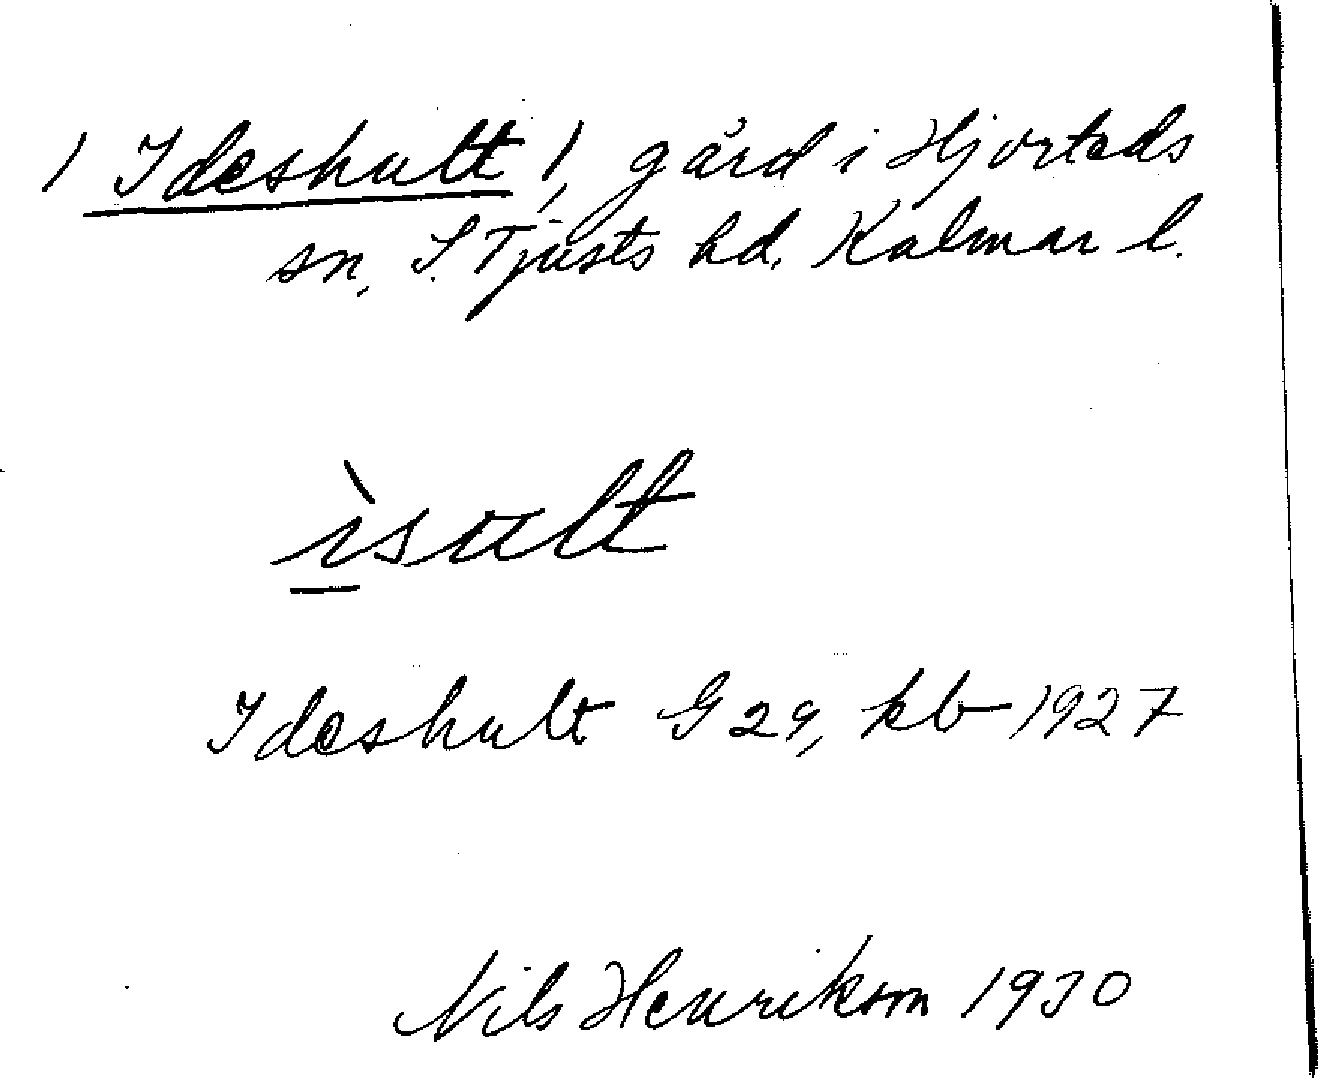 / Ideshult /, gård i Hjorteds
sn, S. Tjusts hd, Kalmar l.
ìsult
Ideshult G 29, kb 1927
Nils Henrikson 1930